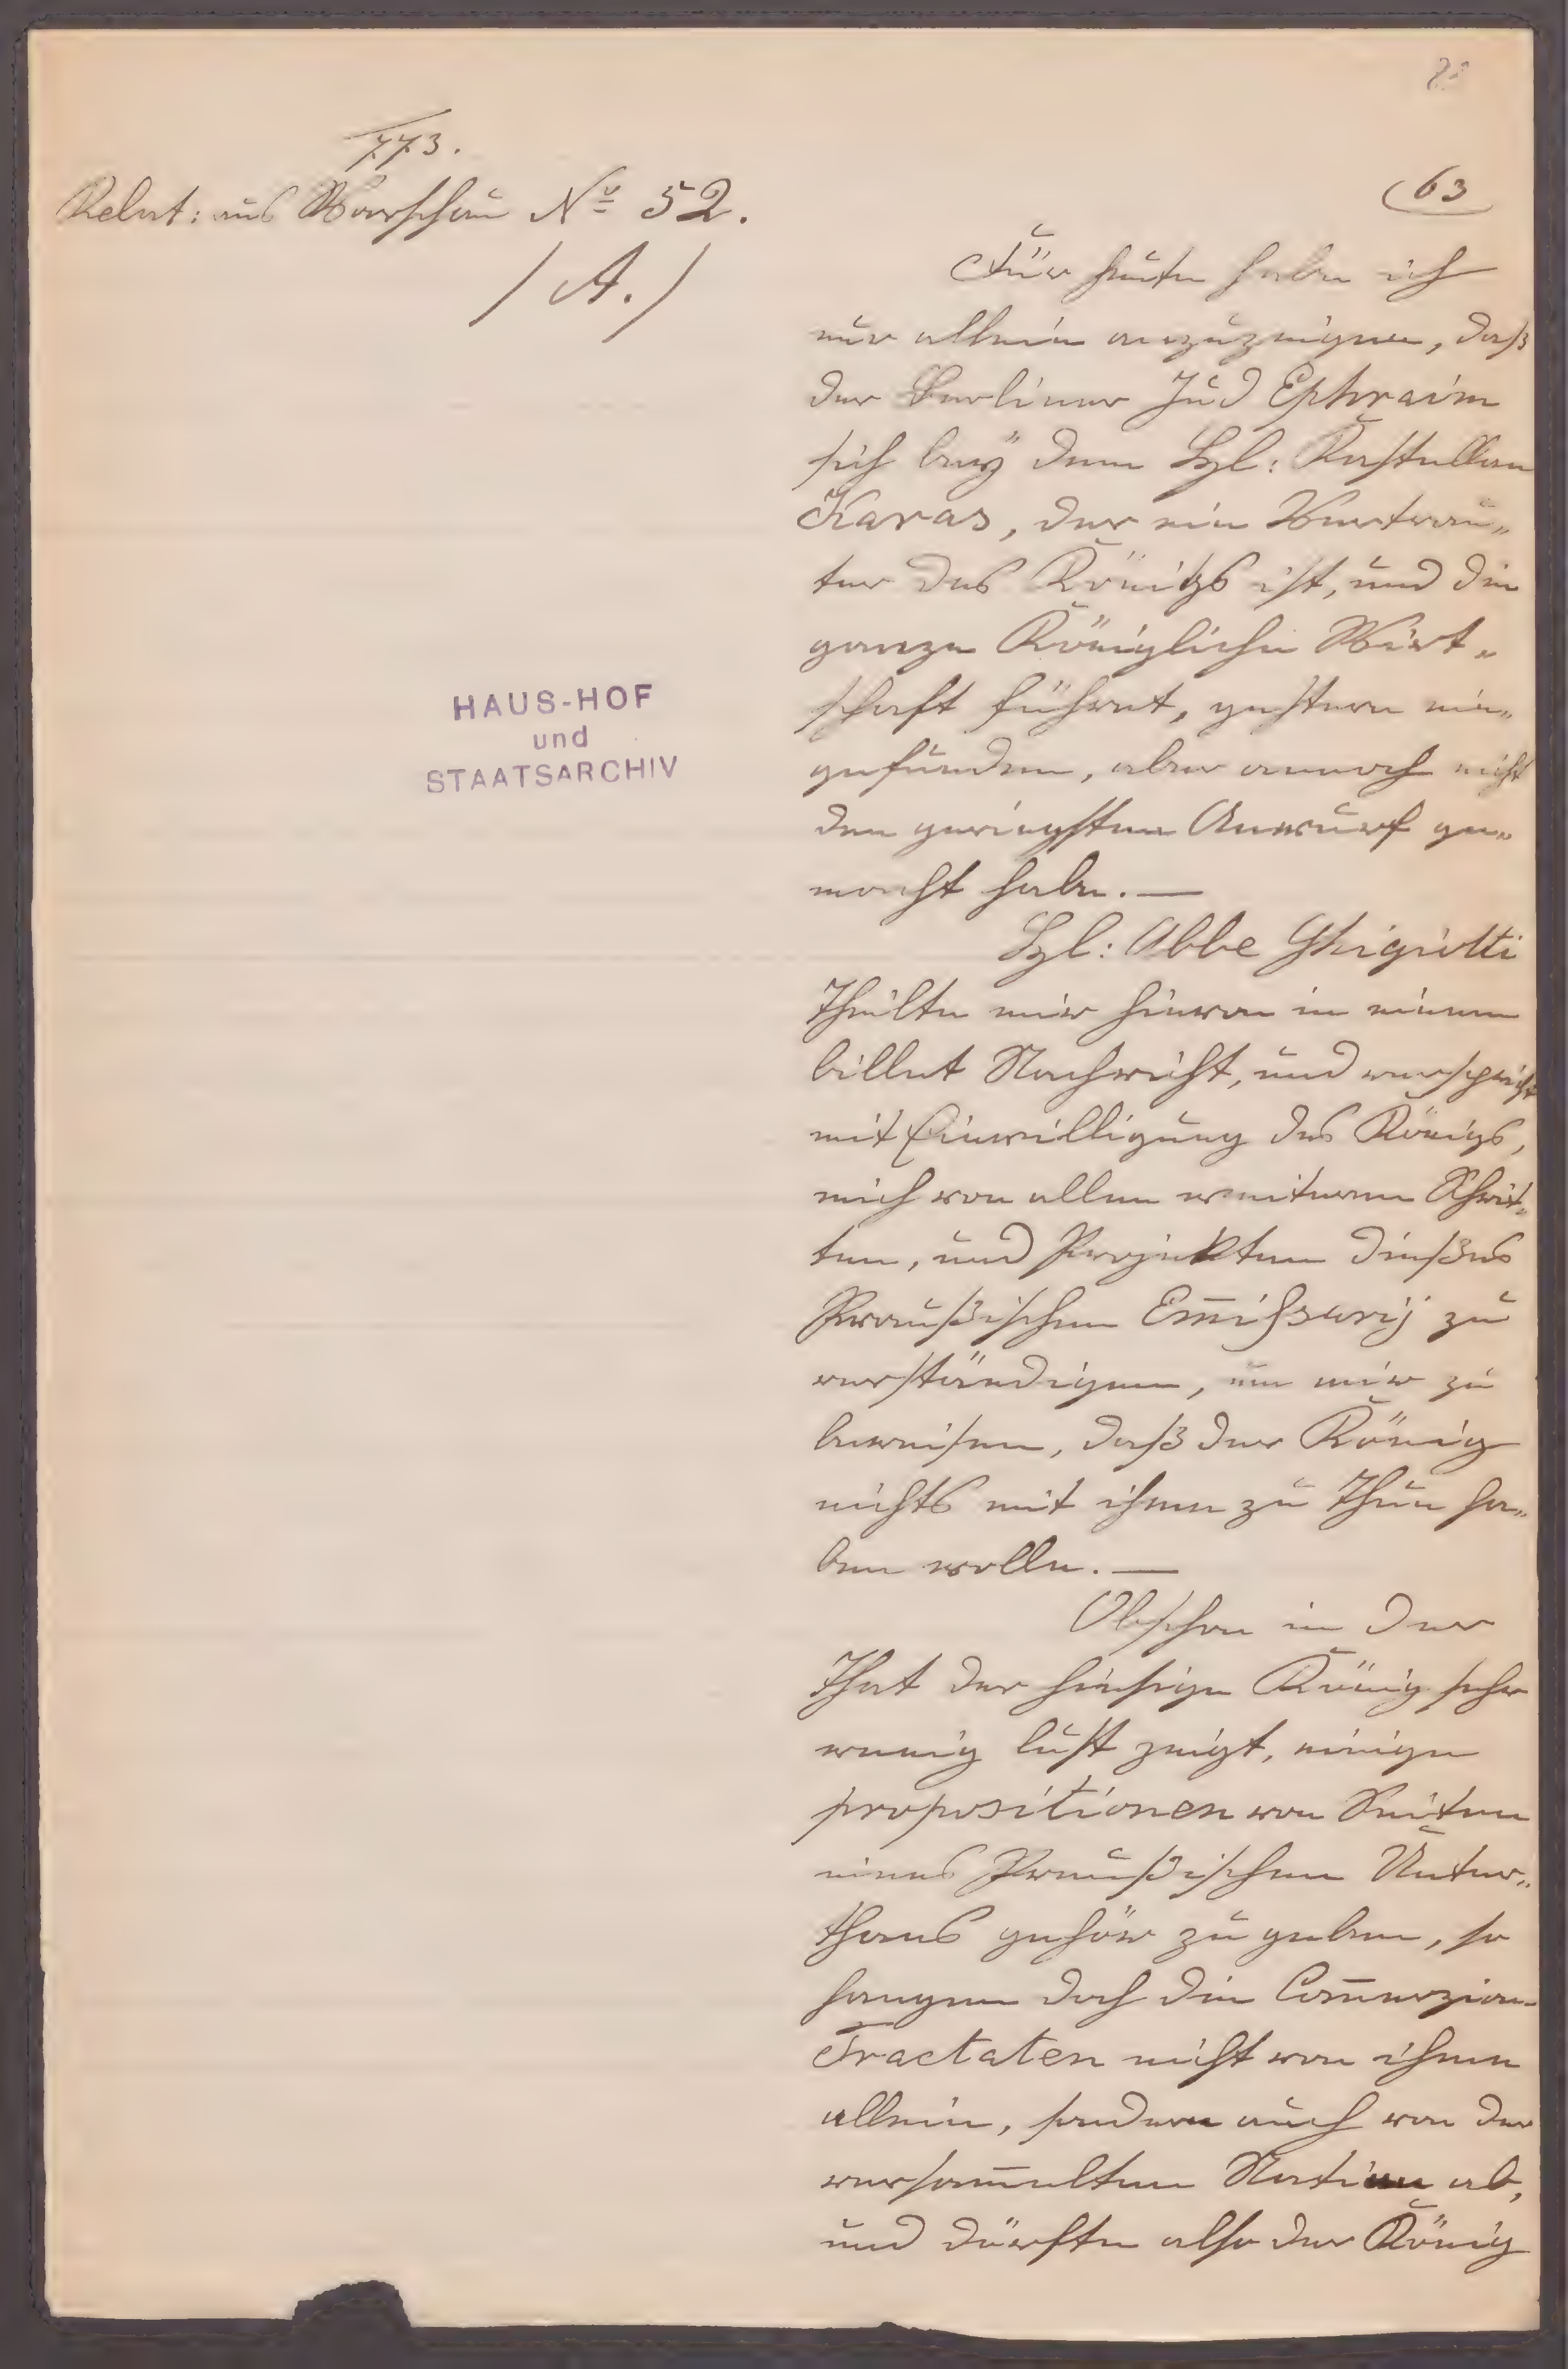 773.
Relat: aus Warschau No 52.
/ A. /
63
HAUS-HOF
und
STAATSARCHIV
Für heute habe ich
nur allein anzuzeigen, daß
der Berliner Jud Ephraim
sich beÿ dem H: Kastellan
Karas, der ein Vertrau„
ter des Königs ist, und die
ganze Königliche Wirt„
schaft führet, gestern ein„
gefunden, aber annoch nicht
den geringsten Anwurf ge„
macht habe. —
H: Abbe Ghigiotti
Theilte mir hievon in einem
billet Nachricht, und verspricht
mit Einwilligung des Königs,
mich von allen weiteren Schrit„
ten, und Projekten dießes
Preußischen Em̅ißarij zu
verständigen, um mir zu
beweisen, daß der König
nichts mit ihme zu Thun ha„
ben wolle. —
Obschon in der
That der hiesige König sehr
wenig lust zeigt, einige
propositionen von Seiten
eines Preußischen Unter„
thans gehör zu geben, so
hangen doch die Com̅erzien-
Tractaten nicht von ihme
allein, sondern auch von der
versam̅elten Nation ab,
und dörfte also der König